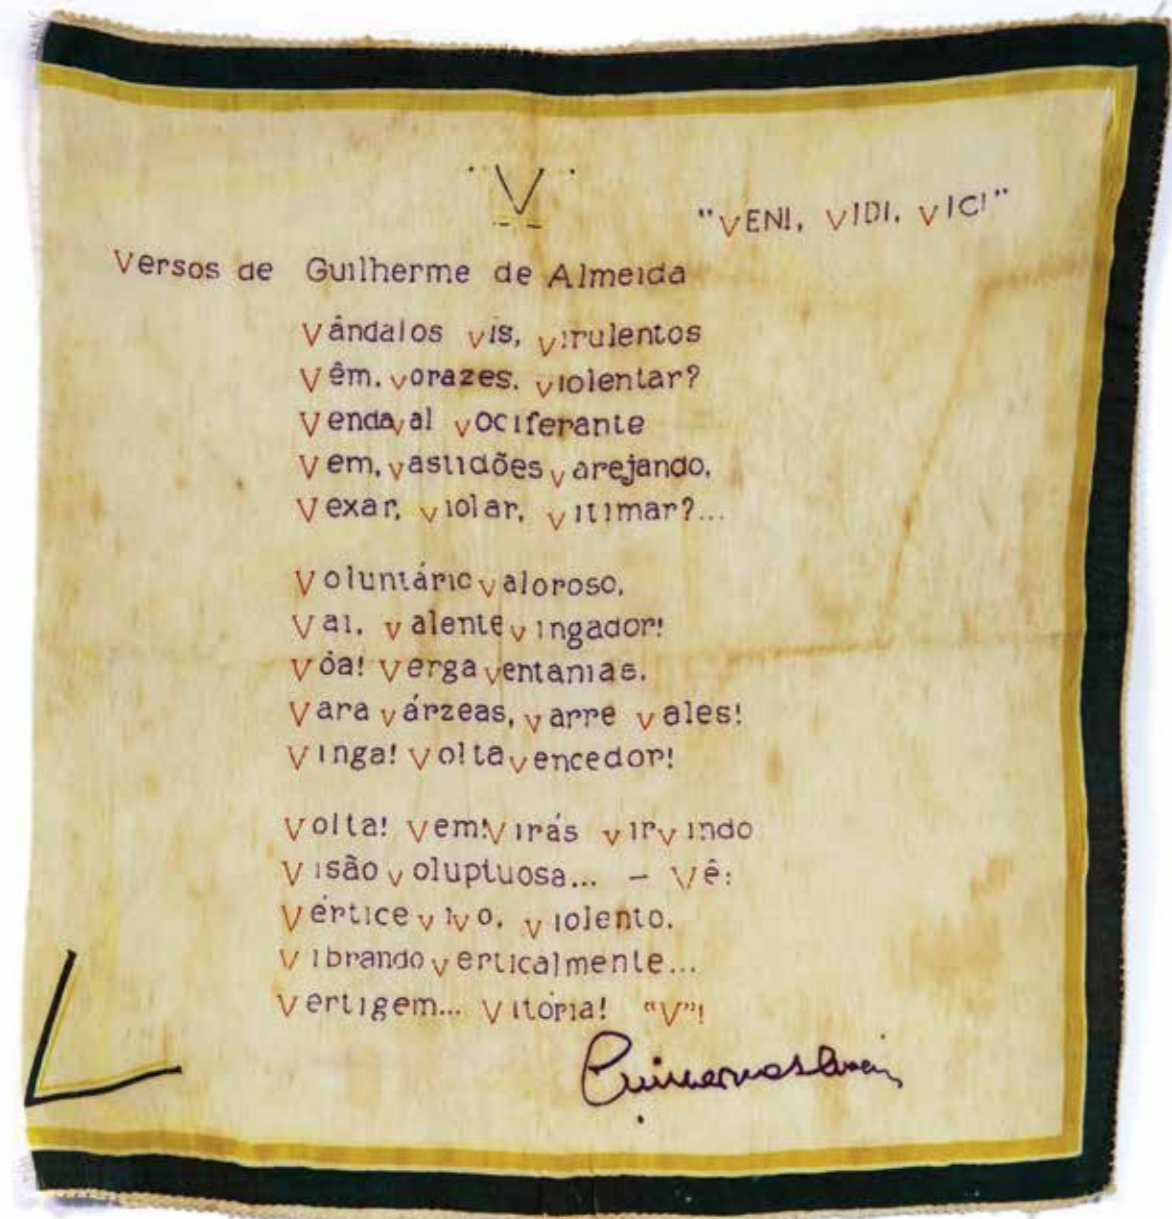 "V"
"VENI, VIDI, VICI"
Versos de Guilherme de Almeida
Vândalos vis, virulentos
Vêm, vorazes, violentar?
Vendaval vociferante
Vem, vastidões varejando,
Vexar, violar, vitimar?...
Voluntário valoroso,
Vai, valente vingador!
Vôa! Verga ventanias,
Vara várzeas, varre vales!
Vinga! Volta vencedor!
Volta! Vem! Virás vir vindo
Visão voluptuosa... - Vê:
Vértice vivo, violento,
Vibrando verticalmente...
Vertigem... Vitória! "V"!